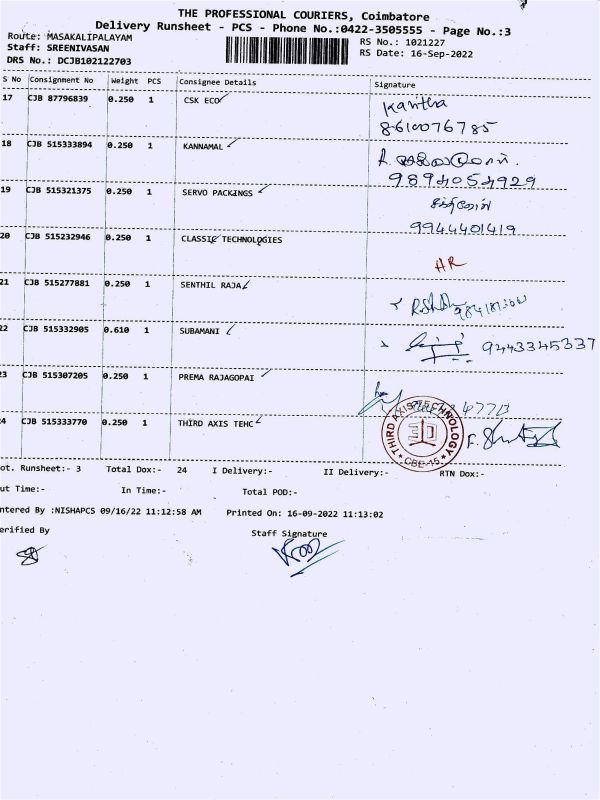 THE PROFESSIONAL COURIERS, Coimbatore
Delivery Runsheet - PCS - Phone No.:0422-3505555 - Page No.:3
Route: MASAKALIPALAYAM
RS No.: 1021227
Staff: SREENIVASAN
RS Date: 16-Sep-2022
DRS No.: DCJB102122703
S No Consignment No Weight PCS Consignee Details Signature
17 CJB 87796839 0.250 1 CSK ECO Kavitha
8610076785
18 CJB 515333894 0.250 1 KANNAMAL
9894054929
19 CJB 515321375 0.250 1 SERVO PACKINGS
9944401419
20 CJB 515232946 0.250 1 CLASSIC TECHNOLOGIES
HR
21 CJB 515277881 0.250 1 SENTHIL RAJA
22 CJB 515332905 0.610 1 SUBAMANI 9443345337
23 CJB 515307205 0.250 1 PREMA RAJAGOPAI
24 CJB 515333770 0.250 1 THIRD AXIS TEHC
THIRD AXIS TECHNOLOGY
CBE-15
ot. Runsheet:- 3 Total Dox:- 24 I Delivery:- II Delivery:- RTN Dox:-
ut Time:- In Time:- Total POD:-
ntered By :NISHAPCS 09/16/22 11:12:58 AM Printed On: 16-09-2022 11:13:02
erified By Staff Signature